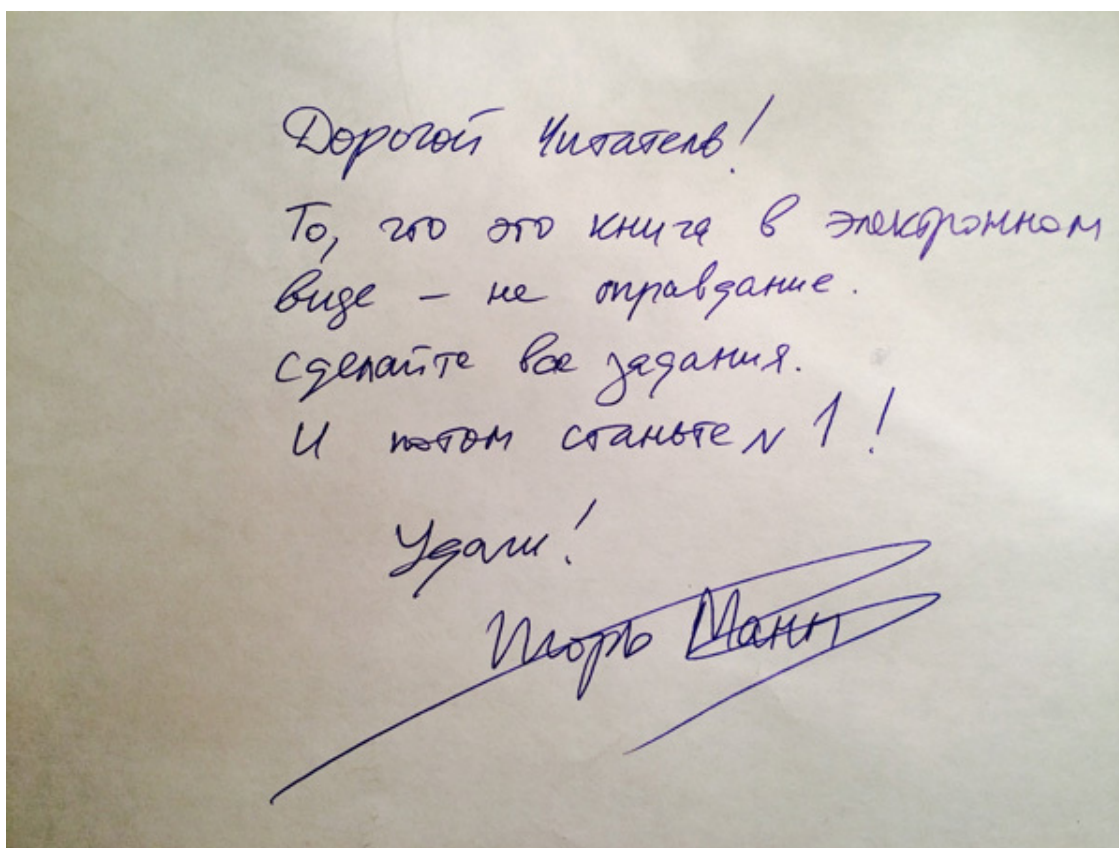 Дорогой Читатель!
То, что это книга в электронном
виде – не оправдание.
Сделайте все задания.
И потом станьте N 1!
Удачи!
Игорь Манн